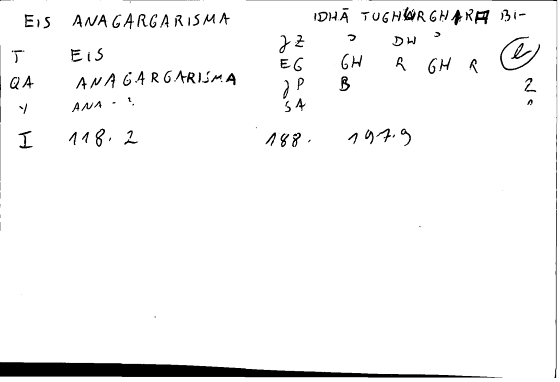 EIS ANAGARGARISMA IDHĀ TUGHURGHAR BI-
T EIS JZ ʾ DH ʾ
QA ANAGARGARISMA EG GH R GH R e
Y ANA - JP B 2
SA
I 118.2 188. 197.9